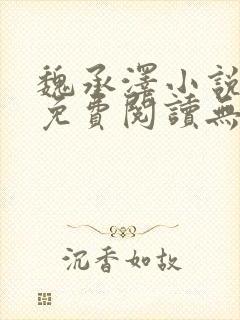 魏承澤小說
免費閱讀無
沉香如故